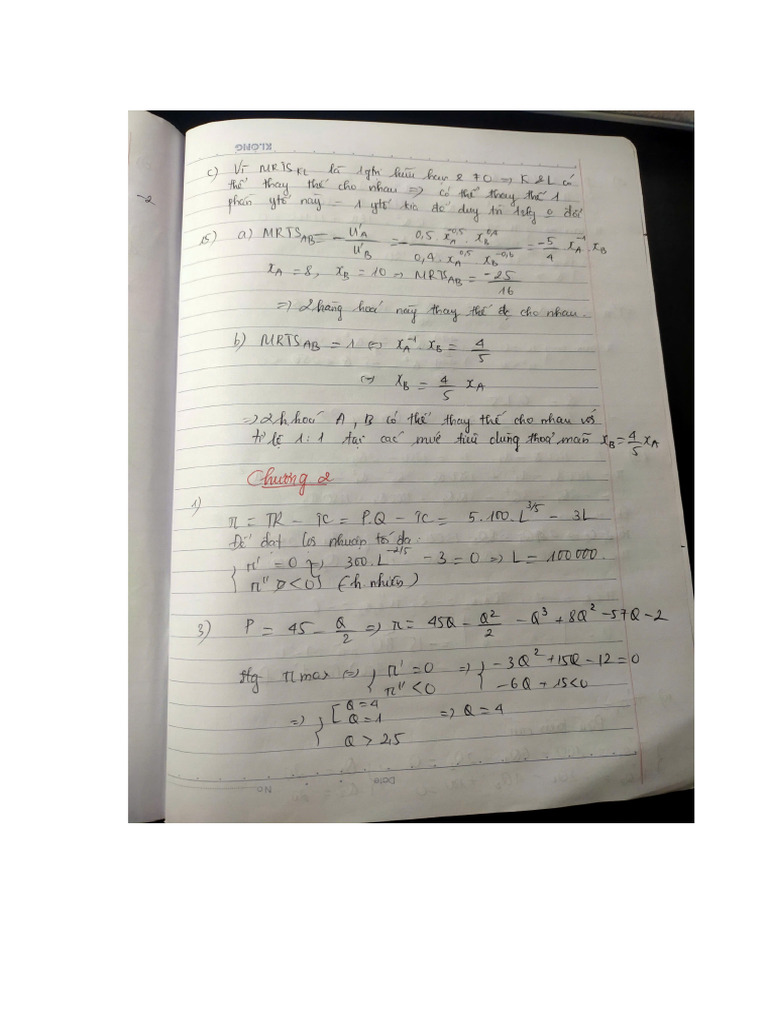 KLONG
-2
c) Vì MRTS_KL là 1 gtri hữu hạn & ≠ 0 => K & L có
thể thay thế cho nhau => có thể thay thế 1
phần ytố này - 1 ytố kia để duy trì 1 slg o đổi
15) a) MRTS_AB = - U'_A / U'_B = - (0,5 x_A^-0,5 . x_B^0,4) / (0,4 . x_A^0,5 x_B^-0,6) = -5/4 x_A^-1 . x_B
x_A = 8, x_B = 10 => MRTS_AB = -25/16
=> 2 hàng hoá này thay thế đc cho nhau.
b) MRTS_AB = 1 <=> x_A^-1 . x_B = 4/5
<=> x_B = 4/5 x_A
=> 2 h.hoá A, B có thể thay thế cho nhau với
tỉ lệ 1:1 tại các mức tiêu dùng thoả mãn x_B = 4/5 x_A
Chương 2
1)
π = TR - TC = P.Q - TC = 5.100.L^3/5 - 3L
Để đạt lợi nhuận tối đa:
{ π' = 0 => 300.L^-2/5 - 3 = 0 => L = 100000.
{ π'' < 0 (h.nhiên)
3) P = 45 - Q/2 => π = 45Q - Q^2/2 - Q^3 + 8Q^2 - 57Q - 2
π max <=> { π' = 0 => { -3Q^2 + 15Q - 12 = 0
{ π'' < 0 { -6Q + 15 < 0
=> { [ Q = 4
Q = 1 => Q = 4
Q > 2,5
Date
No